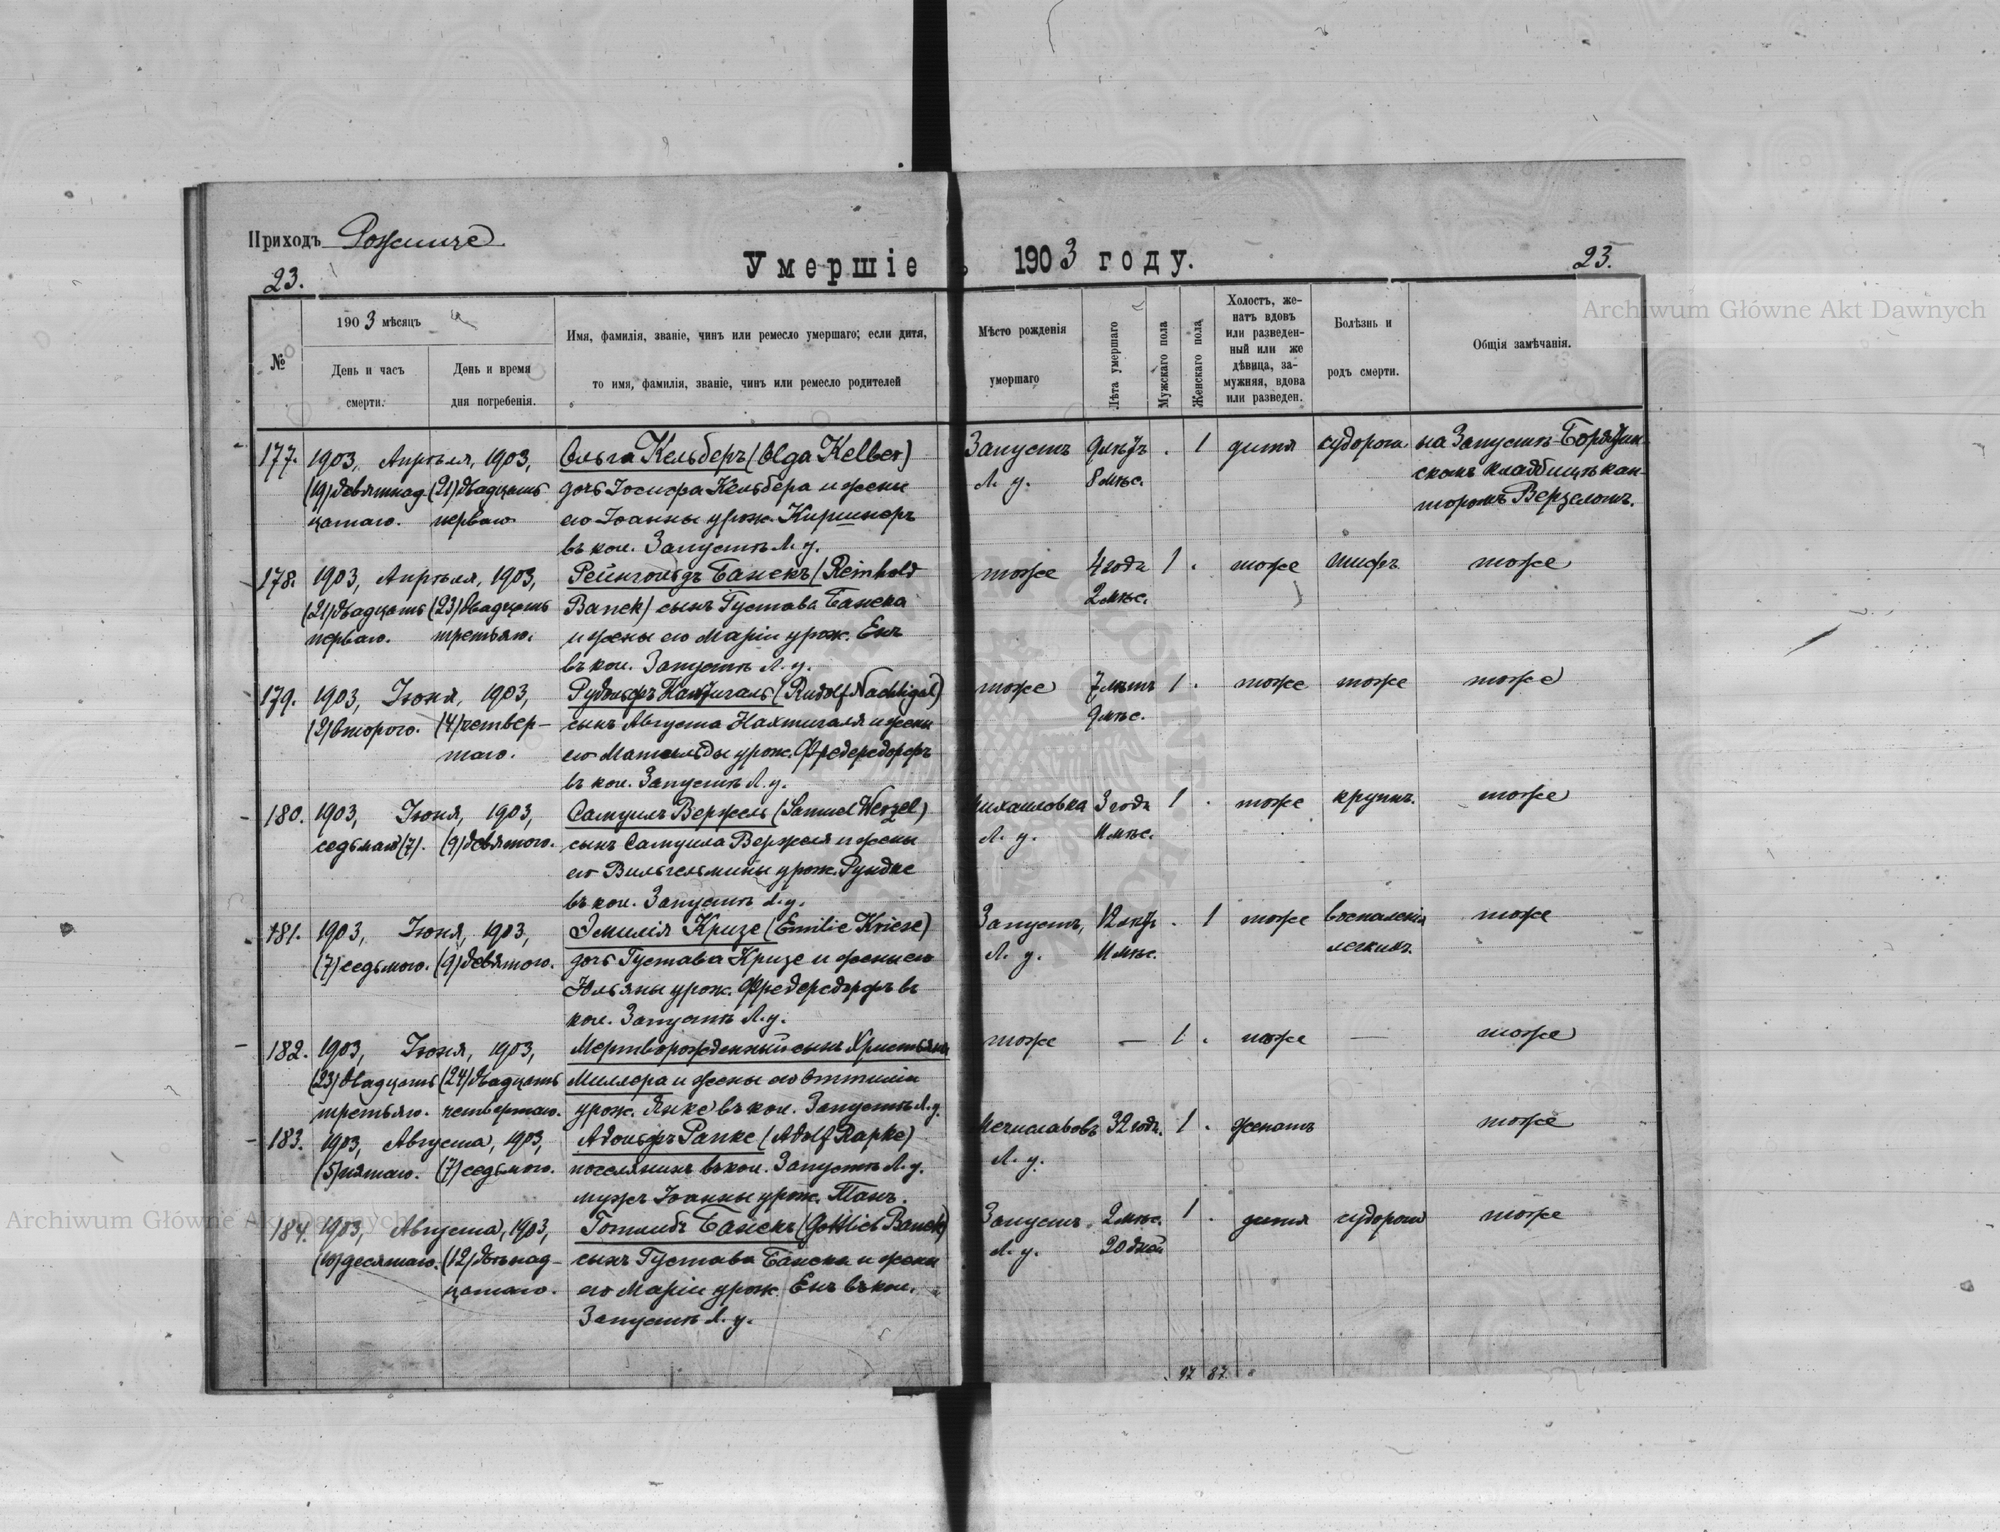 Приходъ Рожище
Умершіе въ 1903 году.
23.
23.
№
1903 мѣсяцъ
День и часъ смерти.
День и время дня погребенія.
Имя, фамилія, званіе, чинъ или ремесло умершаго; если дитя,
то имя, фамилія, званіе, чинъ или ремесло родителей
Мѣсто рожденія умершаго
Лѣта умершаго
Мужскаго пола
Женскаго пола
Холостъ, же-
натъ вдовъ
или разведен-
ный или же
дѣвица, за-
мужняя, вдова
или разведен.
Болѣзнь и
родъ смерти.
Общія замѣчанія.
177. 1903, Апрѣля, 1903, Ольга Кельберъ (Olga Kelber) Запустъ 9 лѣтъ . 1 дитя судороги на Запустѣ-
(19) девятнад (21) двадцать дочь Іосифа Кельбера и жены Л. у. 8 мѣс. скомъ кладбищѣ кан-
цатаго. перваго его Іоанны урож. Киршнеръ торомъ
въ кол. Запустъ Л. у.
178. 1903, Апрѣля, 1903, Рейнгольдъ Банекъ (Reinhold тоже 4 года 1 . тоже тифъ тоже
(21) двадцать (23) двадцать Banek) сынъ Густава Банека 2 мѣс.
перваго. третьяго. и жены его Маріи урож. Енъ
въ кол. Запустъ Л. у.
179. 1903, Іюня, 1903, Рудольфъ Нахтигаль (Rudolf Nachtigal) тоже 7 лѣтъ 1 . тоже тоже тоже
(2) второго. (4) четвер- сынъ Августа Нахтигаля и жены 9 мѣс.
таго. его Матильды урож. Фредередорфъ
въ кол. Запустъ Л. у.
180. 1903, Іюня, 1903, Самуилъ Верцель (Samuel Werzel) Михайловка 3 года 1 . тоже крупъ. тоже
седьмаго (7). (9) девятого. сынъ Самуила Верцеля и жены Л. у. 11 мѣс.
его Вильгельмины урож. Рундке
въ кол. Запустъ Л. у.
181. 1903, Іюня, 1903, Эмилія Кризе (Emilie Kriese) Запустъ, 12 лѣтъ . 1 тоже воспаленія тоже
(7) седьмого. (9) девятого. дочь Густава Кризе и жены его Л. у. 11 мѣс. легкихъ.
Юльяны урож. Фредередорфъ въ
кол. Запустъ Л. у.
182. 1903, Іюня, 1903, Мертворожденный сынъ Христьяна тоже — 1 . тоже — тоже
(23) двадцать (24) двадцать Миллера и жены его Оттиліи
третьяго. четвертаго. урож. Янке въ кол. Запустъ Л. у.
183. 1903, Августа, 1903, Адольфъ Рапке (Adolf Rapke) Мечиславовъ 32 года. 1 . женатъ тоже
(5) пятаго. (7) седьмого. поселянинъ въ кол. Запустъ Л. у. Л. у.
мужъ Іоанны урож. Панъ.
184. 1903, Августа, 1903, Готлибъ Банекъ (Gottlieb Banek) Запустъ 2 мѣс. 1 . дитя судороги тоже
(10) десятаго. (12) двѣнад- сынъ Густава Банека и жены Л. у. 20 дней
цатаго. его Маріи урож. Енъ въ кол.
Запустъ Л. у.
97 87
Archiwum Główne Akt Dawnych
Archiwum Główne Akt Dawnych